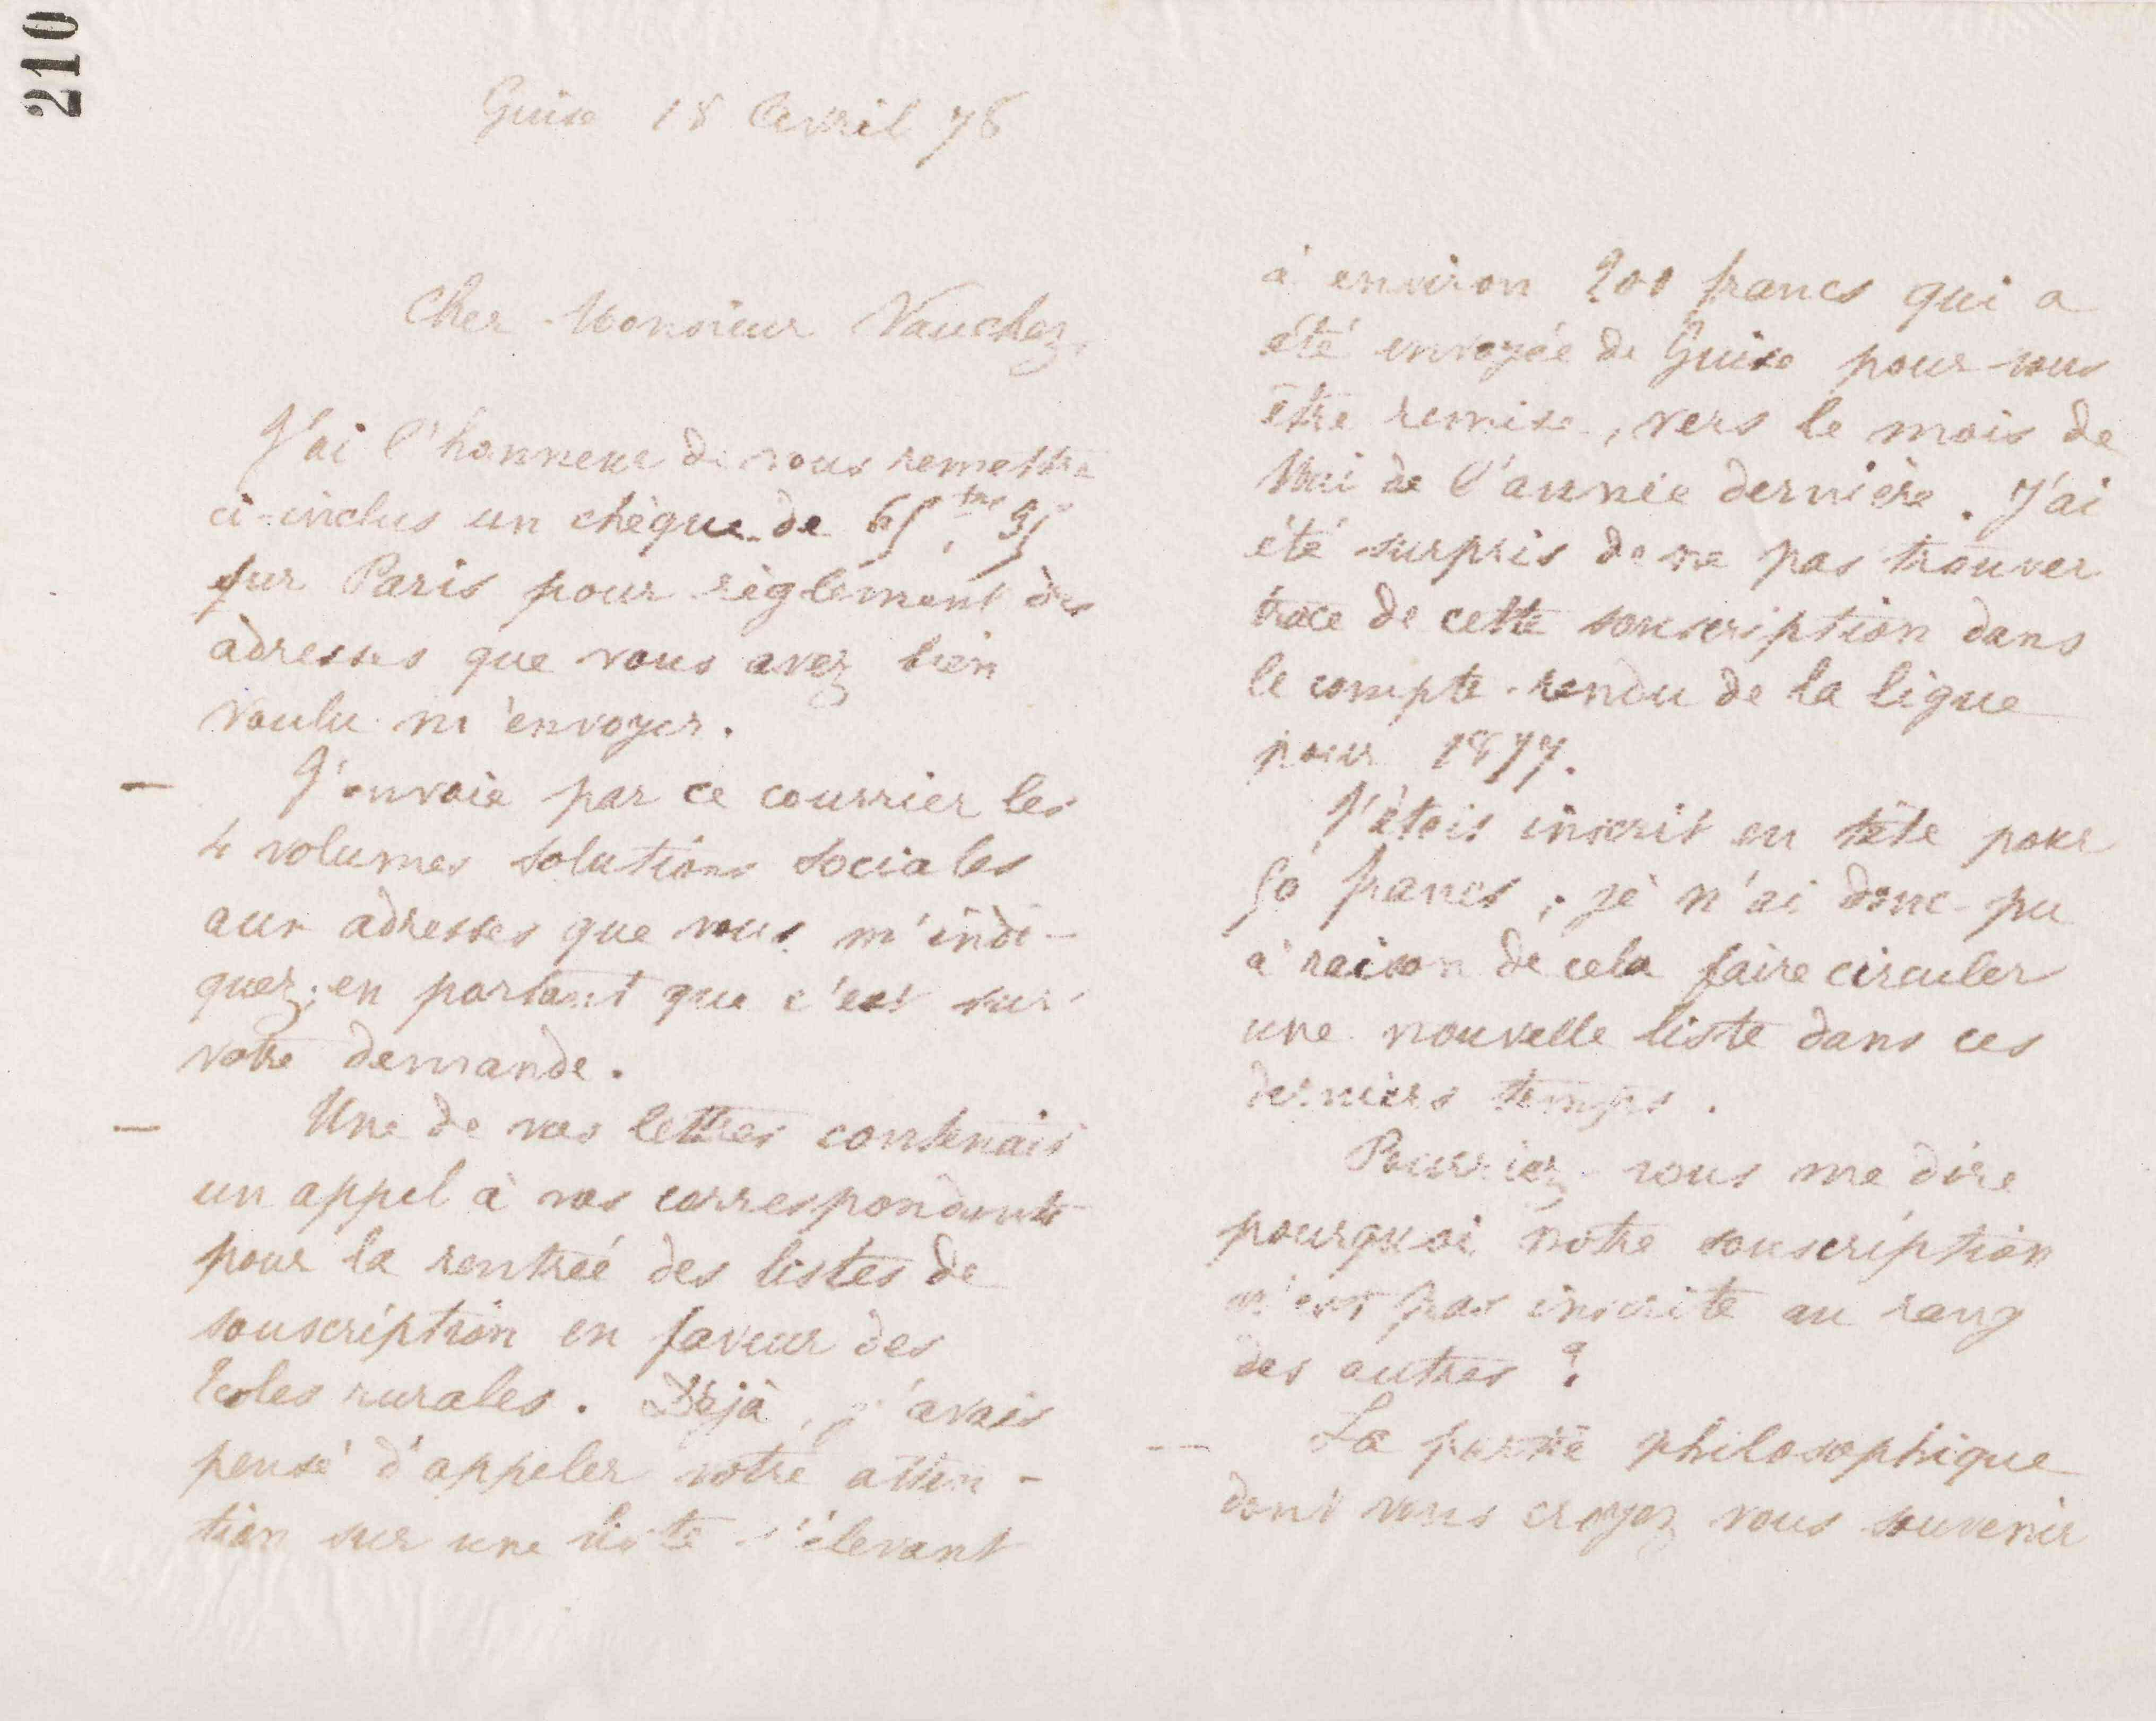 210
Guise 18 Avril 78
Cher Monsieur Vauchez,
J'ai l'honneur de vous remettre
ci-inclus un chèque de 65 frs, 95
sur Paris pour règlement des
adresses que vous avez bien
voulu m'envoyer.
— J'envoie par ce courrier les
4 volumes solutions sociales
aux adresses que vous m'indi-
quez; en portant que c'est sur
votre demande.
— Une de vos lettres contenait
un appel à vos correspondants
pour la rentrée des listes de
souscription en faveur des
Ecoles rurales. Déjà, j'avais
pensé d'appeler votre atten-
tion sur une liste s'élevant
à environ 200 francs qui a
été envoyée de Guise pour vous
être remise, vers le mois de
Mai de l'année dernière. J'ai
été surpris de ne pas trouver
trace de cette souscription dans
le compte-rendu de la ligue
pour 1877.
J'étais inscrit en tête pour
50 francs; je n'ai donc pu
à raison de cela faire circuler
une nouvelle liste dans ces
derniers temps.
Pourriez-vous me dire
pourquoi notre souscription
n'est pas inscrite au rang
des autres ?
— La partie philosophique
dont vous croyez vous souvenir